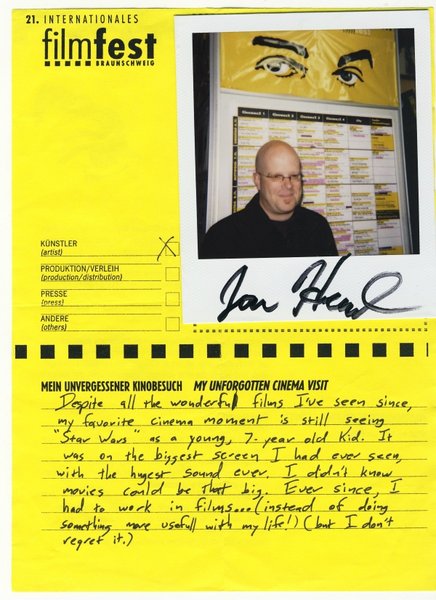 21. INTERNATIONALES
filmfest
BRAUNSCHWEIG
KÜNSTLER
(artist)
PRODUKTION/VERLEIH
(production/distribution)
PRESSE
(press)
ANDERE
(others)
MEIN UNVERGESSENER KINOBESUCH MY UNFORGOTTEN CINEMA VISIT
Despite all the wonderful films I've seen since,
my favorite cinema moment is still seeing
"Star Wars" as a young, 7-year old kid. It
was on the biggest screen I had ever seen,
with the hugest sound ever. I didn't know
movies could be that big. Ever since, I
had to work in films...(instead of doing
something more usefull with my life!) (but I don't
regret it.)